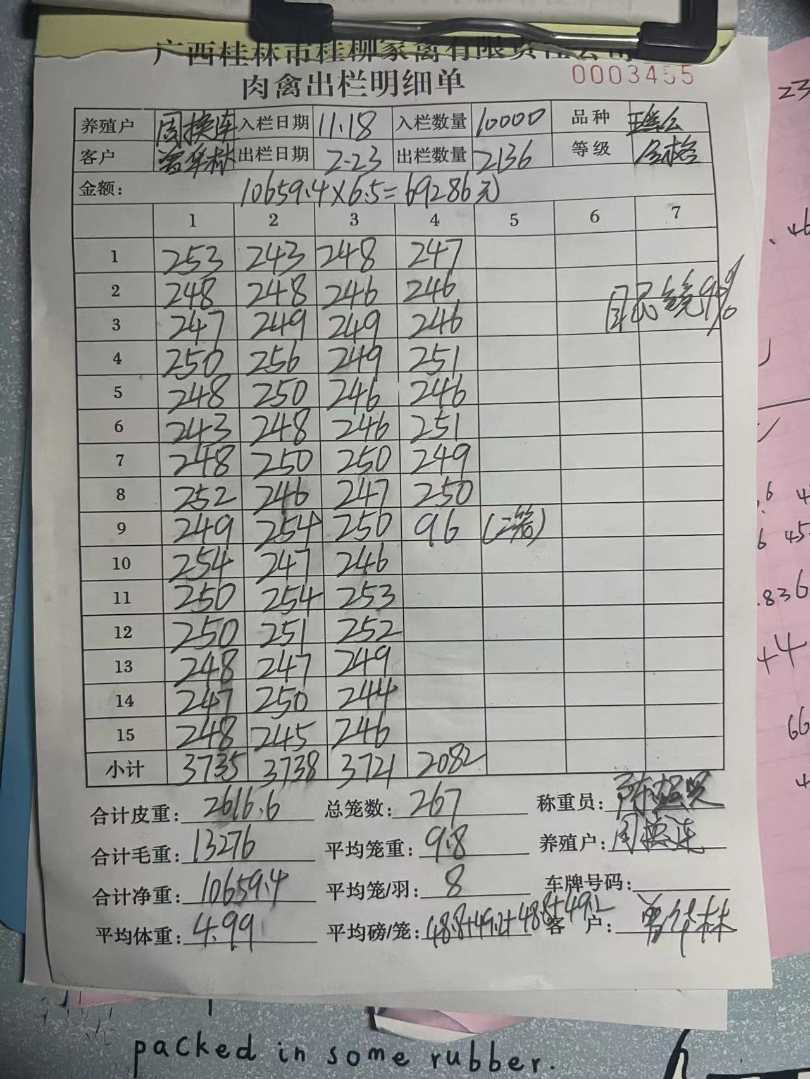 广西桂林市桂柳家禽有限责任公司
肉禽出栏明细单 0003455
养殖户 周换连 入栏日期 11.18 入栏数量 10000 品种
客户 出栏日期 2-23 出栏数量 2136 等级 合格
金额: 10659.4×6.5=69286元
1 2 3 4 5 6 7
1 253 243 248 247
2 248 248 246 246
3 247 249 249 246
4 250 256 249 251
5 248 250 246 246
6 243 248 246 251
7 248 250 250 249
8 252 246 247 250
9 249 254 250 96 (二笼)
10 254 247 246
11 250 254 253
12 250 251 252
13 248 247 249
14 247 250 244
15 248 245 246
小计 3735 3738 3721 2082
合计皮重: 2616.6 总笼数: 267 称重员:
合计毛重: 13276 平均笼重: 9.8 养殖户: 周换连
合计净重: 10659.4 平均笼/羽: 8 车牌号码:
平均体重: 4.99 平均磅/笼: 48.8+49.2+48.8+49.2 客户:
packed in some rubber.